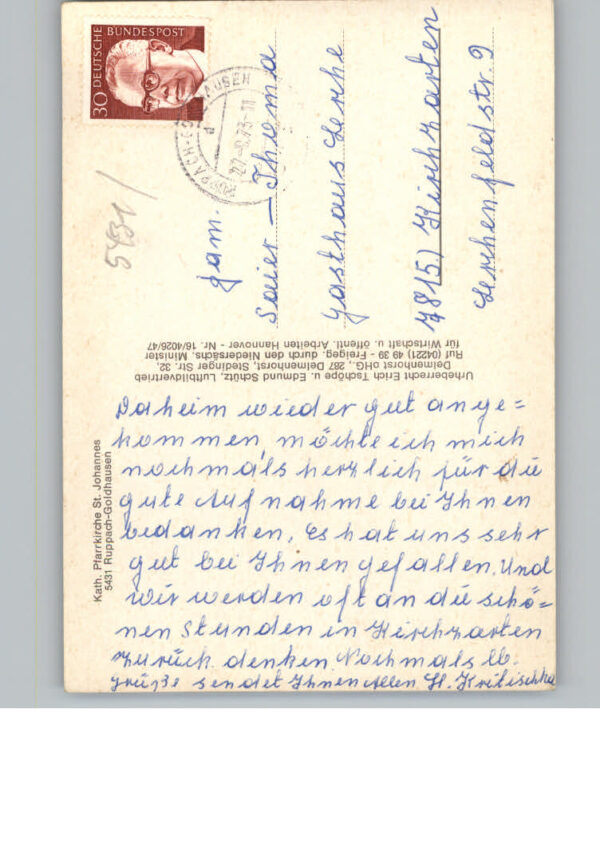 Daheim wieder gut ange=
kommen, möchte ich mich
nochmals herzlich für die
gute Aufnahme bei Ihnen
bedanken, Es hat uns sehr
gut bei Ihnen gefallen. Und
wir werden oft an die schö=
nen Stunden in Kirchzarten
zurück denken. Nochmals lb.
Grüße sendet Ihnen Allen
Kath. Pfarrkirche St. Johannes
5431 Ruppach-Goldhausen
Urheberrecht Erich Tschöpe u. Edmund Schütz, Luftbildvertrieb
Delmenhorst oHG., 287 Delmenhorst, Stedinger Str. 32,
Ruf (04221) 49 39 - Freigeg. durch den Niedersächs. Minister
für Wirtschaft u. öffentl. Arbeiten Hannover - Nr. 16/4026/47
5431/
30 DEUTSCHE BUNDESPOST
RUPPACH-GOLDHAUSEN
27.-8.73-11
Fam.
Saier — Thoma
Gasthaus Lerche
7815) Kirchzarten
Lerchenfeldstr. 9